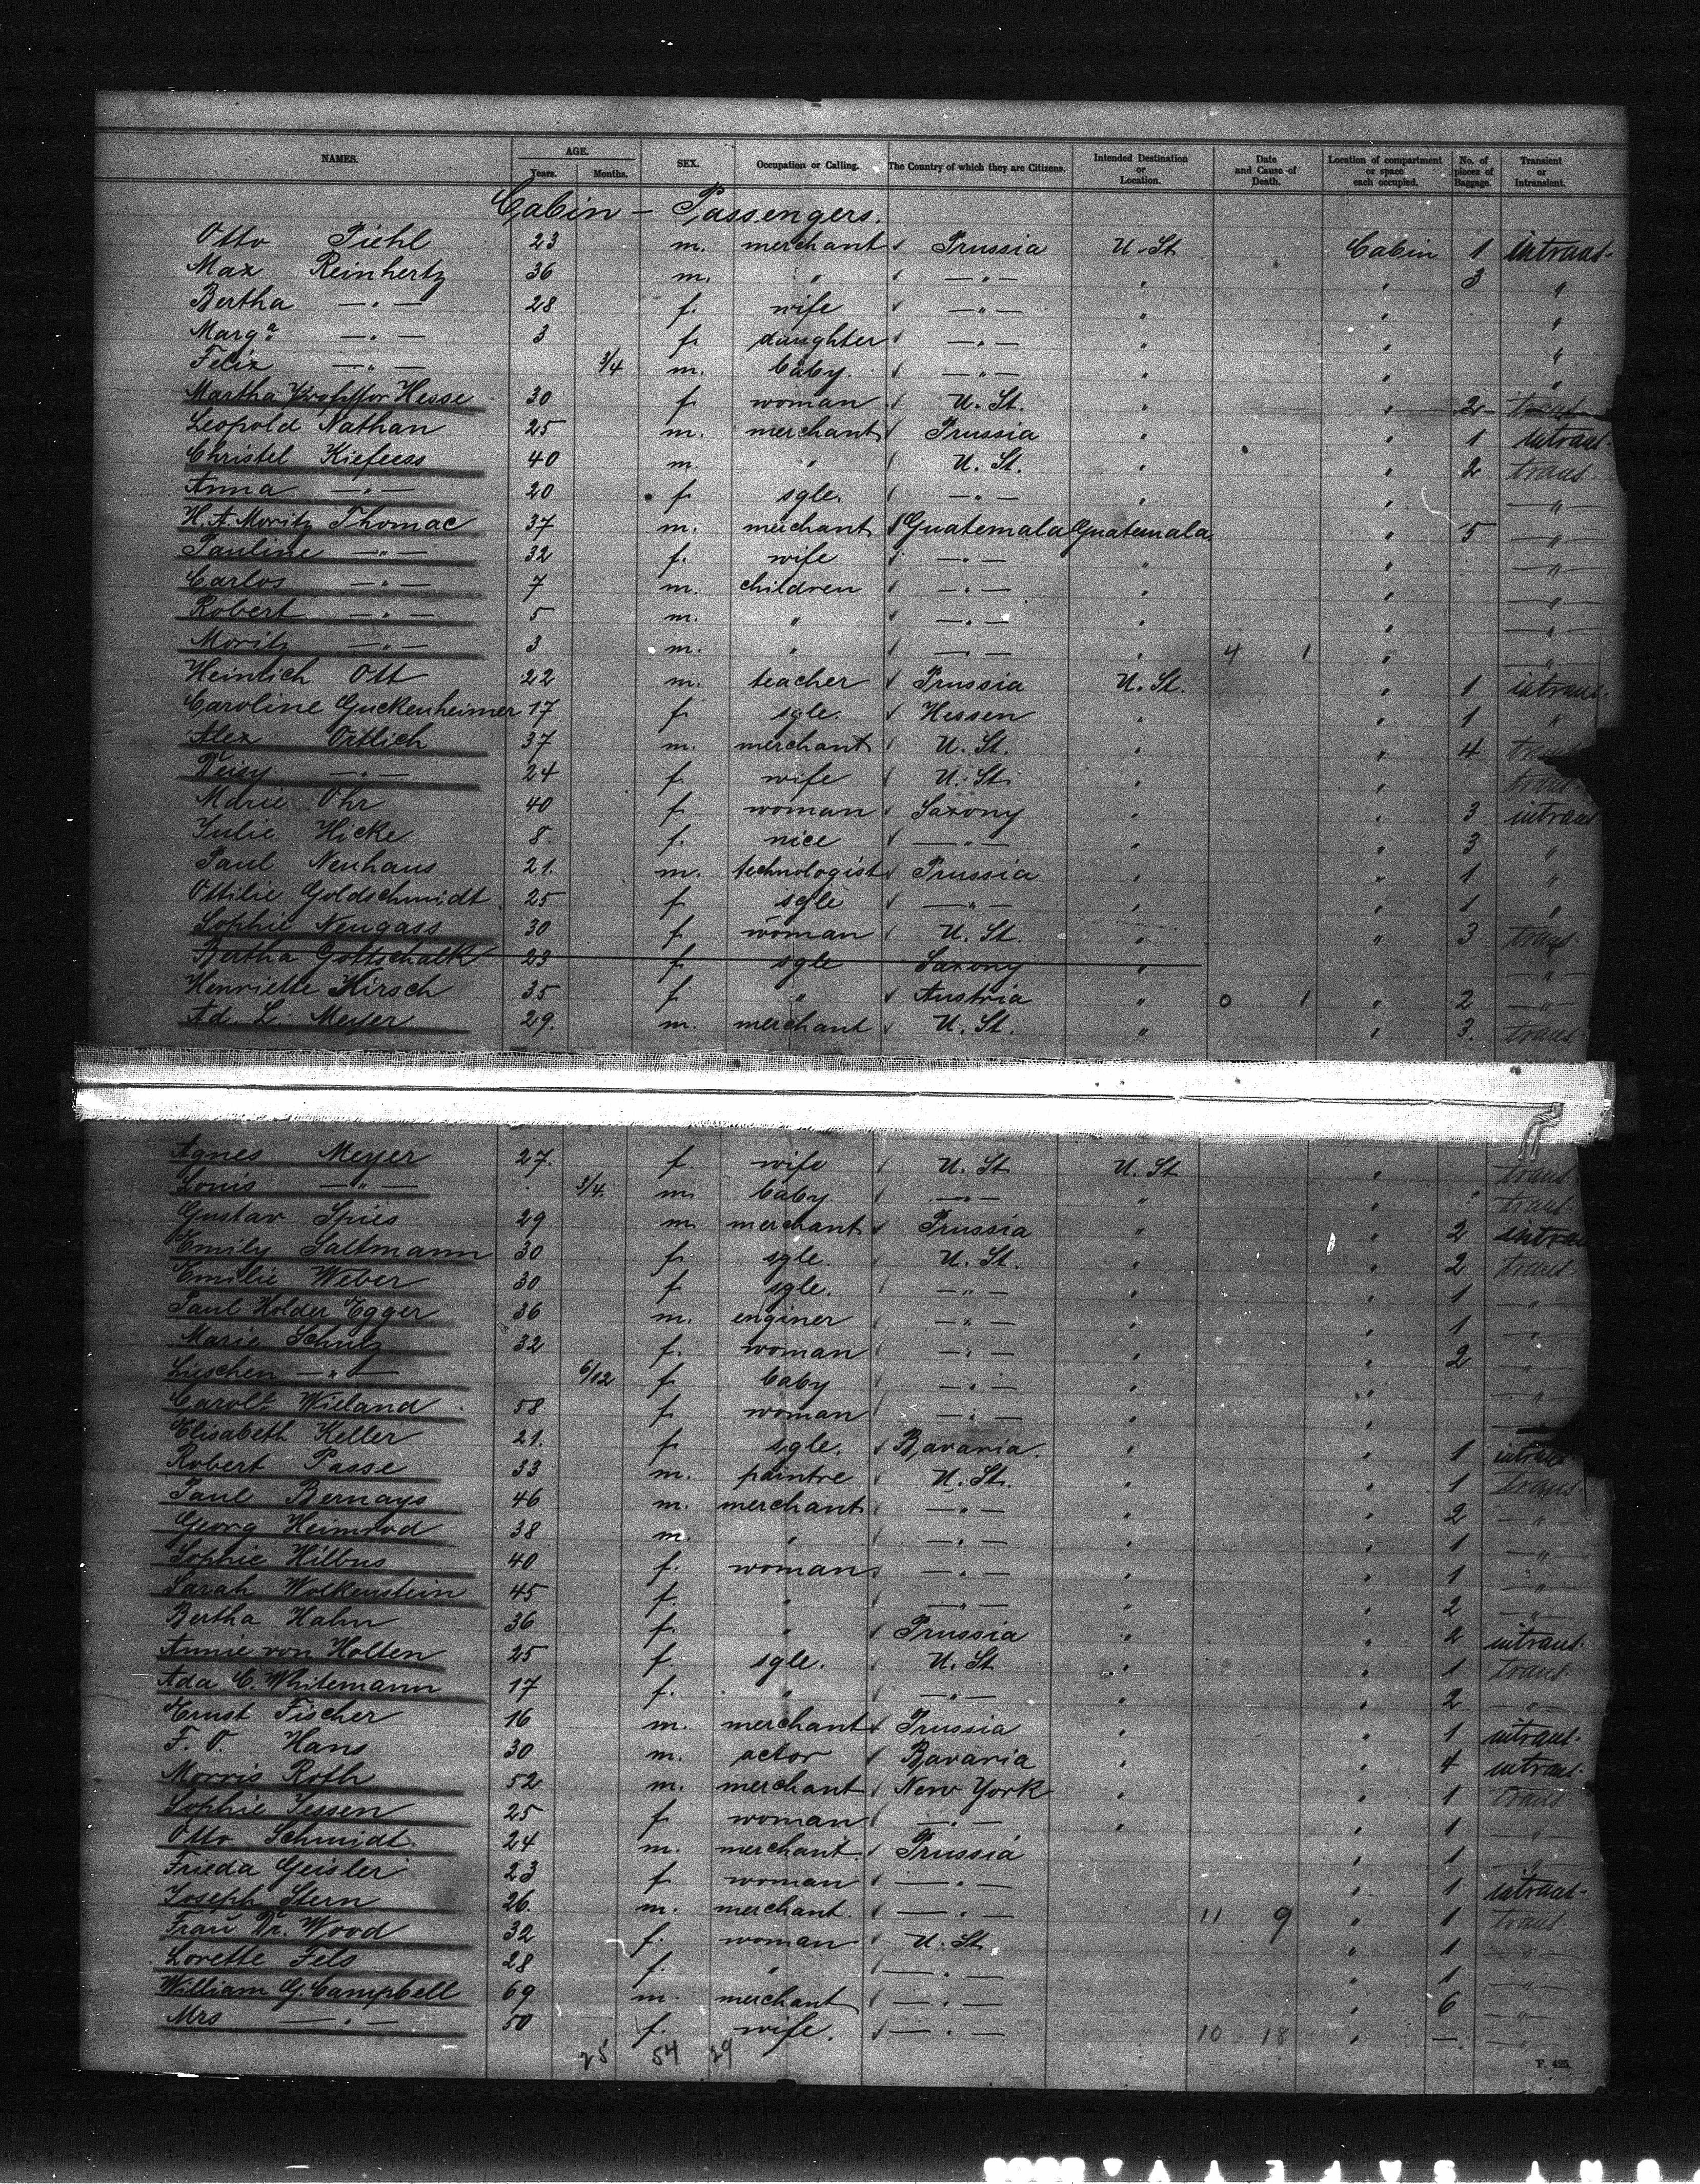 NAMES. AGE. Years. Months. SEX. Occupation or Calling. The Country of which they are Citizens. Intended Destination or Location. Date and Cause of Death. Location of compartment or space each occupied. No. of pieces of Baggage. Transient or Intransient.
Cabin - Passengers.
Otto Piehl 23 m. merchant Prussia U. St. Cabin 1 intrans.
Max Reinhertz 36 m. " — " — " " 3 "
Bertha — " — 28 f. wife — " — " " "
Marga — " — 3 f. daughter — " — " " "
Felix — " — 3/4 m. baby. — " — " " "
Martha Hesse 30 f. woman U. St. " " 2
Leopold Nathan 25 m. merchant Prussia " " 1 intrans.
Christel 40 m. " U. St. " " 2 trans.
Anna — " — 20 f. sgle. — " — " " — " —
H. A. Moritz Thomae 37 m. merchant Guatemala Guatemala " 5 — " —
Pauline — " — 32 f. wife — " — " " — " —
Carlos — " — 7 m. children — " — " " — " —
Robert — " — 5 m. " — " — " " — " —
Moritz — " — 3 m. " — " — " 4 1 " — " —
Heinrich Ott 22 m. teacher Prussia U. St. " 1 intrans.
Caroline Guckenheimer 17 f. sgle. Hessen " " 1 "
Alex Ortlich 37 m. merchant U. St. " " 4 trans.
Deisy — " — 24 f. wife U. St. " " trans.
Marie Ohr 40 f. woman Saxony " " 3 intrans.
Julie Hicke 8. f. nice — " — " " 3 "
Paul Neuhaus 21. m. technologist Prussia " " 1 "
Ottilie Goldschmidt 25 f. sgle — " — " " 1 "
Sophie Neugass 30 f. woman U. St. " " 3 trans.
Bertha Gottschalk 23 f. sgle Saxony " — " —
Henriette Hirsch 35 f. " Austria " 0 1 " 2 — " —
Ad. L. Meyer 29. m. merchant U. St. " " 3. trans.
Agnes Meyer 27. f. wife U. St. U. St. " trans.
Louis — " — 3/4. m. baby — " — " " trans.
Gustav Spies 29 m. merchant Prussia " " 2 intrans
Emily Saltmann 30 f. sgle. U. St. " " 2 trans.
Emilie Weber 30 f. sgle. — " — " " 1 — " —
Paul Holder Egger 36 m. enginer — " — " " 1 — " —
Marie Schulz 32 f. woman — " — " " 2 — " —
Lieschen — " — 6/12 f. baby — " — " " — " —
Carolt. Wieland 58 f. woman — " — " " — " —
Elisabeth Keller 21. f. sgle. Bavaria. " " 1 intrans.
Robert Passe 33 m. paintre U. St. " " 1 trans.
Paul Bernays 46 m. merchant — " — " " 2 — " —
Georg Heimrod 38 m. " — " — " " 1 — " —
Sophie Hilbus 40 f. woman — " — " " 1 — " —
Sarah Wolkenstein 45 f. " — " — " " 2 — " —
Bertha Hahn 36 f. " Prussia " " 2 intrans.
Annie von Holten 25 f. sgle. U. St. " " 1 trans.
Ada C. Whitemann 17 f. " — " — " " 2 — " —
Ernst Fischer 16 m. merchant Prussia " " 1 intrans.
F. O. Hans 30 m. actor Bavaria " " 4 intrans.
Morris Roth 52 m. merchant New York " " 1 trans.
Sophie Jessen 25 f. woman — " — " " 1 — " —
Otto Schmidt. 24 m. merchant. Prussia " 1 — " —
Frieda Geisler 23 f. woman — " — " 1 intrans.
Joseph Stern 26. m. merchant. — " — 11 9 " 1 trans.
Frau Dr. Wood 32 f. woman U. St. " 1 — " —
Lorette Fels 28 f. " — " — " 1 — " —
William G. Campbell 69 m. merchant — " — " 6 — " —
Mrs — " — 50 f. wife. — " — 10 18 " — — " —
25 54 29
F. 425.